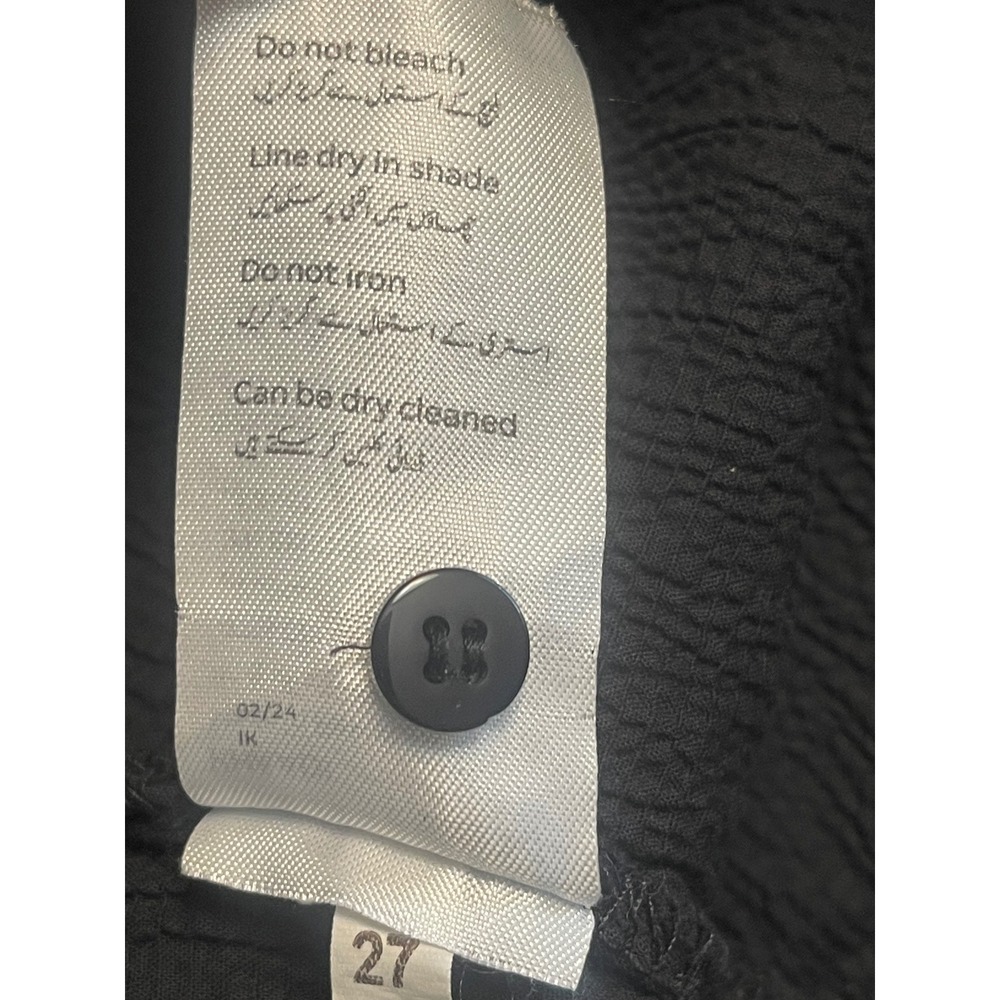 Do not bleach
بلیچ کے استعمال سے گریز کریں
Line dry in shade
چھاؤں میں رسی پر سکھائیں
Do not iron
استری کے استعمال سے گریز کریں
Can be dry cleaned
ڈرائی کلین کر سکتے ہیں
02/24
IK
27